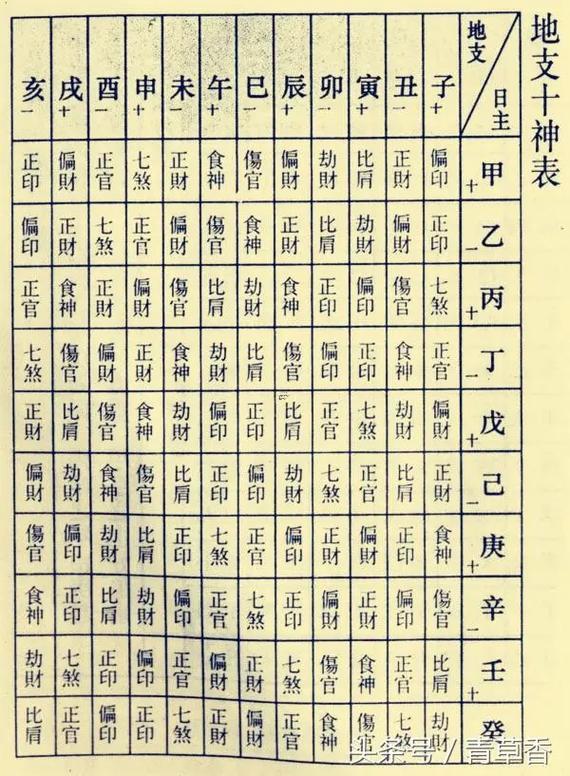 地支十神表
日主 地支 子+ 丑- 寅+ 卯- 辰+ 巳- 午+ 未- 申+ 酉- 戌+ 亥-
甲+ 偏印 正財 比肩 劫財 偏財 傷官 食神 正財 七煞 正官 偏財 正印
乙- 正印 偏財 劫財 比肩 正財 食神 傷官 偏財 正官 七煞 正財 偏印
丙+ 七煞 傷官 偏印 正印 食神 劫財 比肩 傷官 偏財 正財 食神 正官
丁- 正官 食神 正印 偏印 傷官 比肩 劫財 食神 正財 偏財 傷官 七煞
戊+ 偏財 劫財 七煞 正官 比肩 正印 偏印 劫財 食神 傷官 比肩 正財
己- 正財 比肩 正官 七煞 劫財 偏印 正印 比肩 傷官 食神 劫財 偏財
庚+ 食神 正印 偏財 正財 偏印 正官 七煞 正印 比肩 劫財 偏印 傷官
辛- 傷官 偏印 正財 偏財 正印 七煞 正官 偏印 劫財 比肩 正印 食神
壬+ 比肩 正官 食神 傷官 七煞 正財 偏財 正官 偏印 正印 七煞 劫財
癸 劫財 七煞 傷官 食神 正官 偏財 正財 七煞 正印 偏印 正官 比肩
头条号/青草香